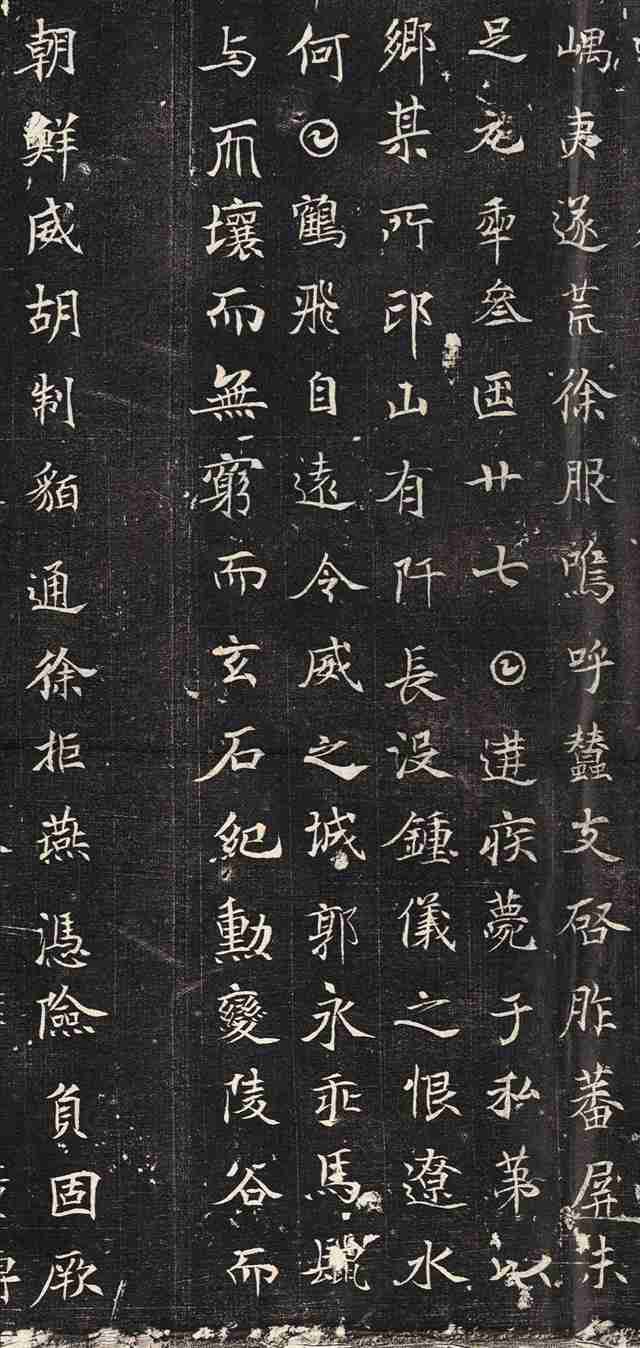 嵎夷遂荒徐服嗚呼蠢支啓胙蕃屏未
足元𠡦叁𠥱廿七𡆠遘疾薨于私第以
鄉某所邙山有阡長沒鍾儀之恨遼水
何𡆠鶴飛自遠令威之城郭永乖馬鬣
与𠀑壤而無窮而玄石紀勳變陵谷而
朝鮮威胡制貊通徐拒燕憑險負固厥